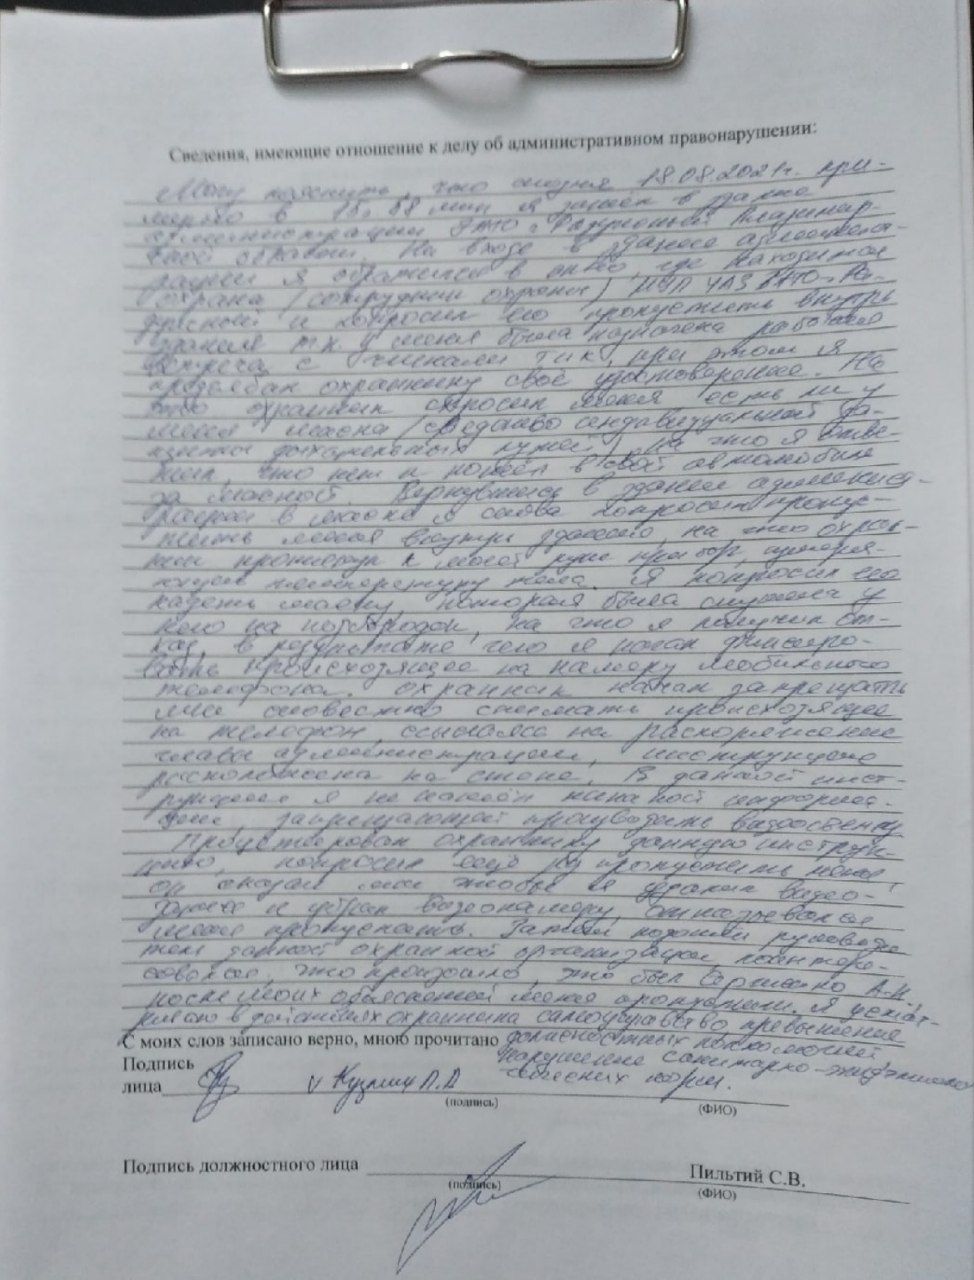 Сведения, имеющие отношение к делу об административном правонарушении:
Могу пояснить, что сегодня 18.08.2021г. при-
мерно в 15 58 мин я зашел в здание
администрации ЗАТО г. Радужный Владимир-
ской области. На входе в здание администра-
рации я обратился в окно, где находится
охрана (сотрудник охраны) МУП ЧАЗ ЗАТО г. Ра-
дужный и попросил его пропустить внутрь
здания т.к. у меня была назначена рабочая
встреча с членами ТИК, при этом я
показал охраннику своё удостоверение. На
это охранник спросил меня есть ли у
меня маска (средство индивидуальной за-
щиты дыхательных путей), на что я отве-
тил, что нет и пошёл в свой автомобиль
за маской. Вернувшись в здание администра-
рации в маске я снова попросил пропус-
тить меня внутрь здания, на что охран-
ник протянул к моей руке прибор, измеря-
ющий температуру тела. Я попросил его
надеть маску, которая была спущена у
него на подбородок, на что я получил от-
каз, в результате чего я начал фиксиро-
вать происходящее на камеру мобильного
телефона. Охранник начал запрещать
мне словесно снимать происходящее
на телефон, ссылаясь на распоряжение
главы администрации, инструкция
расположена на стене. В данной инст-
рукции я не нашёл никакой информа-
ции, запрещающей производить видеосъемку
охраннику данную инструк-
цию, попросил ещё раз пропустить меня
он сказал мне чтобы я удалил видео-
и убрал видеокамеру, отказывался
меня пропускать. Затем подошли руководи-
тели данной охранной организации, поинтере-
совался, что произошло, это был А.Н.,
после моих объяснений меня пропустили. Я усмат-
риваю в действиях охранника самоуправство, превышение
С моих слов записано верно, мною прочитано должностных полномочий
нарушение санитарно-эпидемиоло-
гических норм.
Подпись
лица Кузмич П.А
(подпись)
(ФИО)
Подпись должностного лица
Пильтий С.В.
(подпись)
(ФИО)